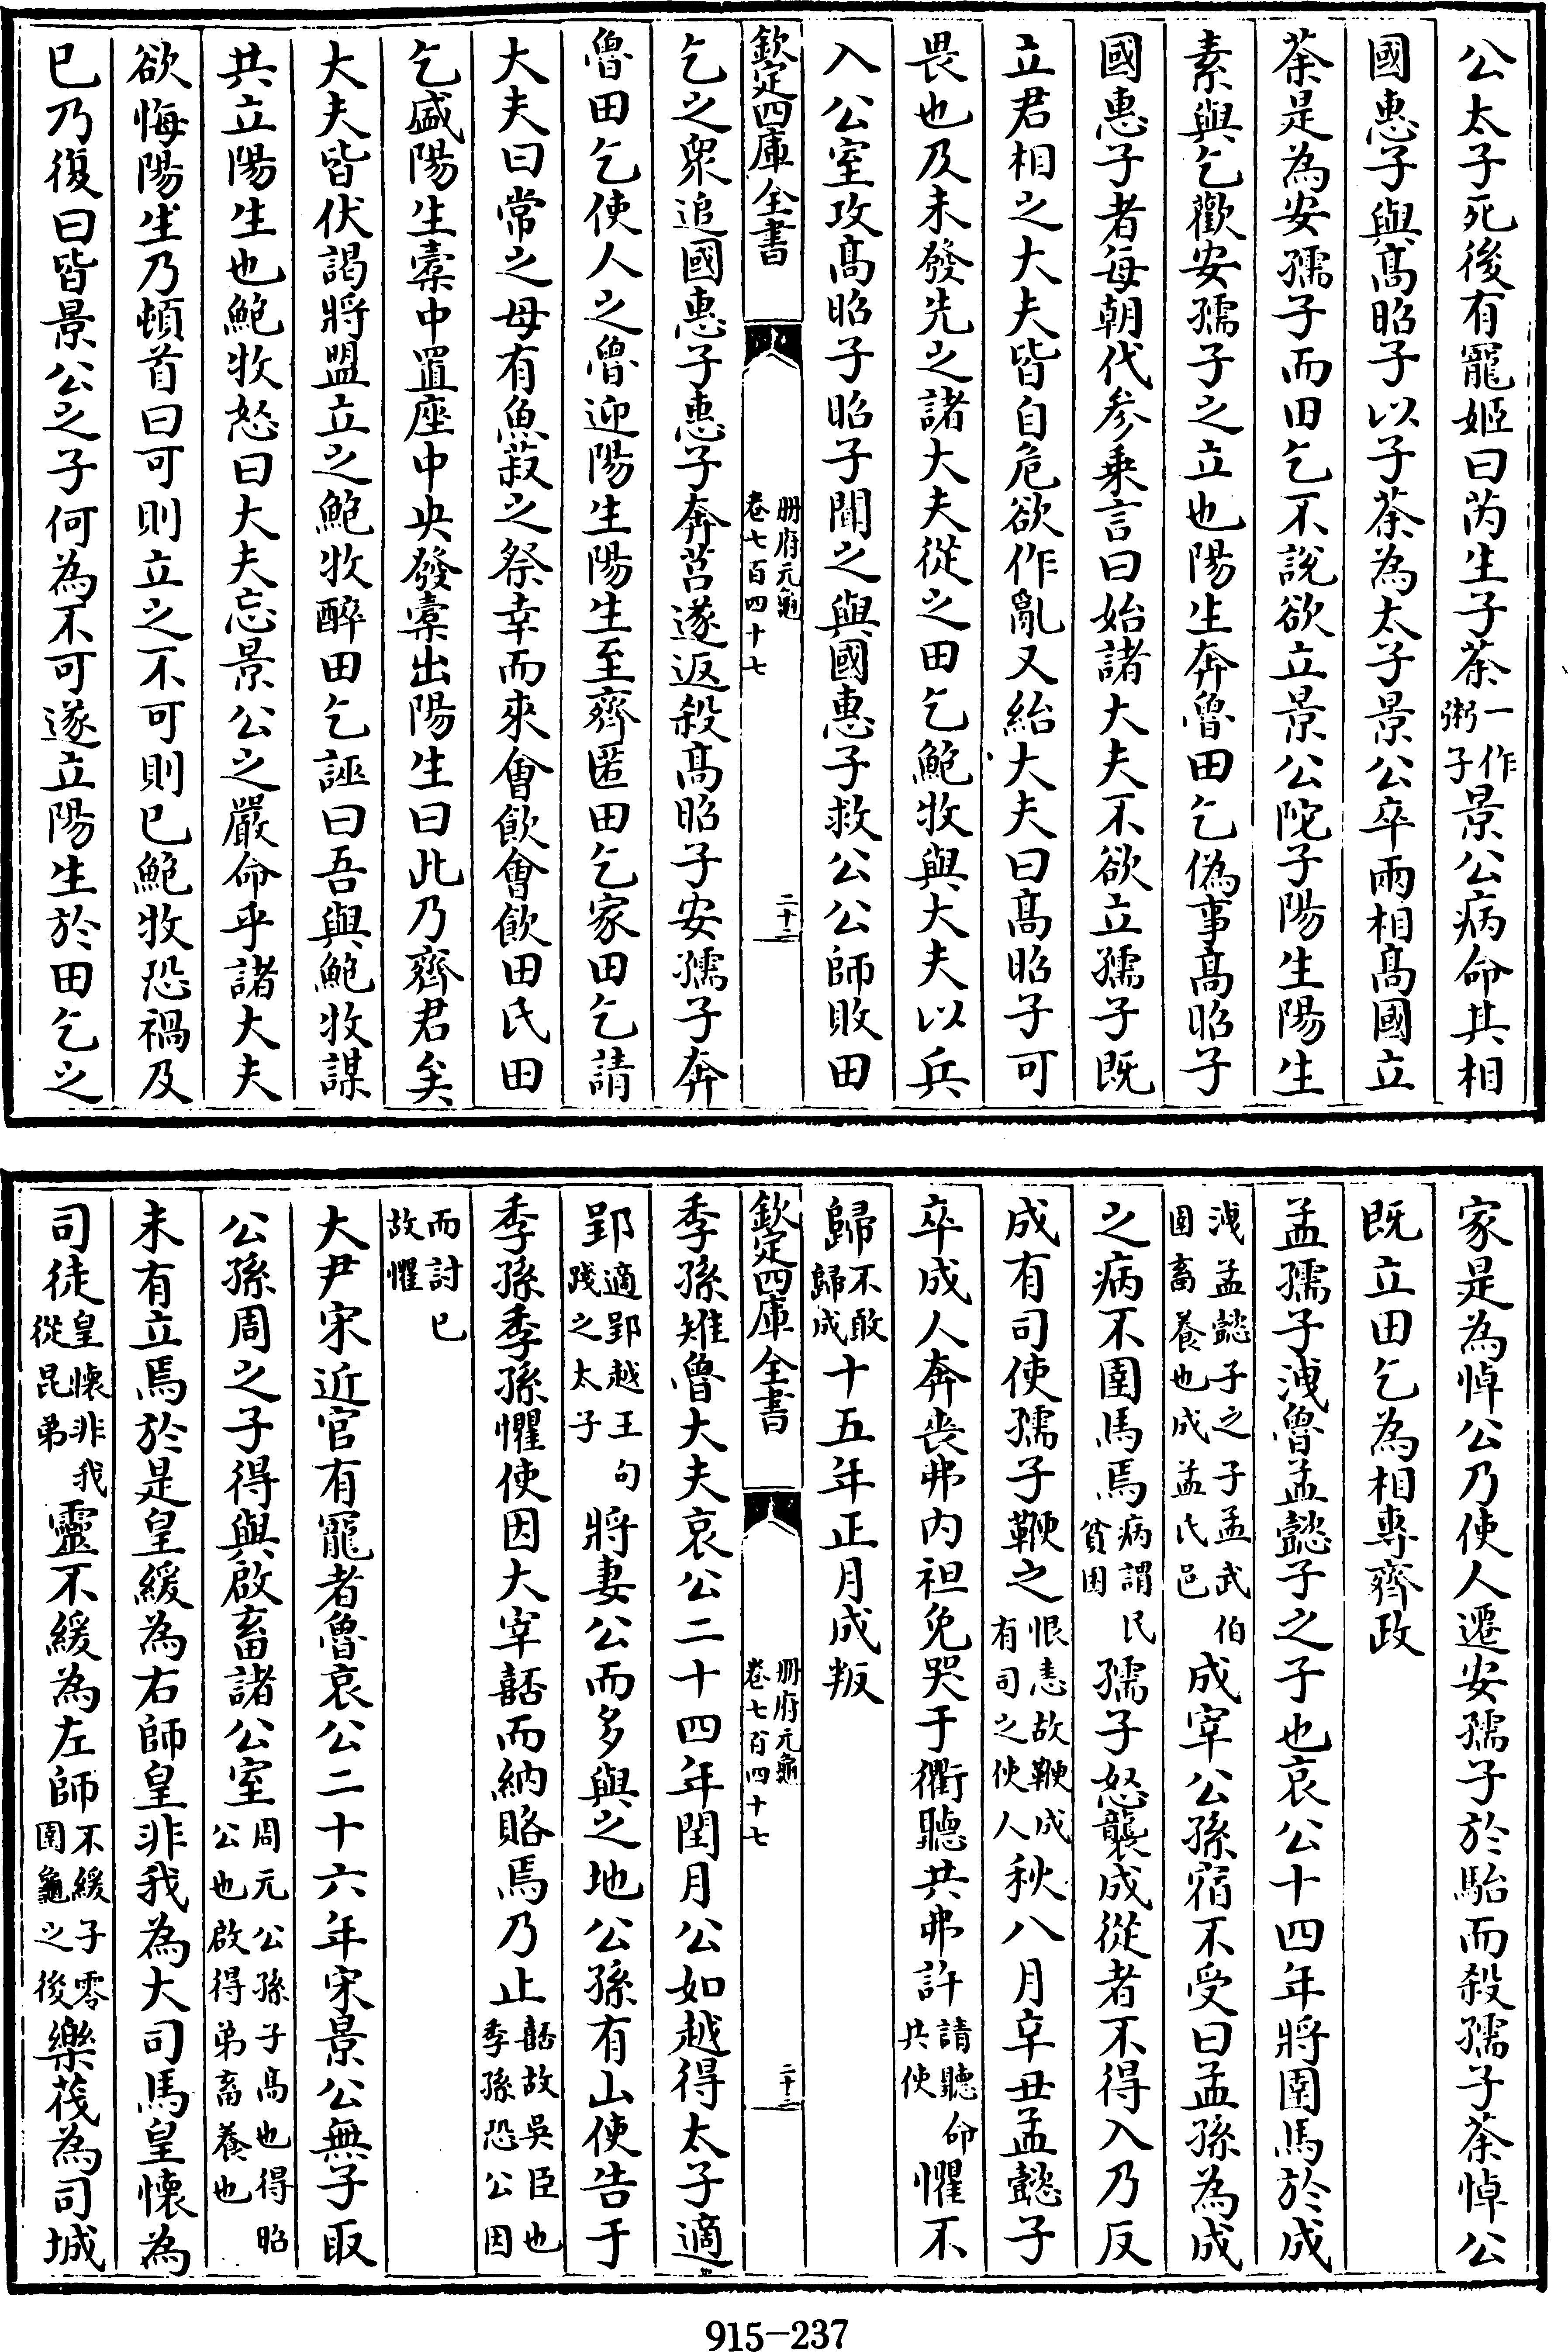 公太子死後有寵姬曰芮生子荼一作粥子景公病命其相
國惠子與髙昭子以子荼為太子景公卒兩相髙國立
荼是為安孺子而田乞不說欲立景公陀子陽生陽生
素與乞歡安孺子之立也陽生奔魯田乞偽事髙昭子
國惠子者每朝代参乗言曰始諸大夫不欲立孺子既
立君相之大夫皆自危欲作亂又紿大夫曰髙昭子可
畏也及未發先之諸大夫從之田乞鮑牧與大夫以兵
入公室攻髙昭子昭子聞之與國惠子救公公師敗田
欽定四庫全書 冊府元龜 卷七百四十七 二十二
乞之衆追國惠子惠子奔莒遂返殺髙昭子安孺子奔
魯田乞使人之魯迎陽生陽生至齊匿田乞家田乞請
大夫曰常之母有魚菽之祭幸而來會飲會飲田氏田
乞盛陽生橐中置座中央發橐出陽生曰此乃齊君矣
大夫皆伏謁將盟立之鮑牧醉田乞誣曰吾與鮑牧謀
共立陽生也鮑牧怒曰大夫忘景公之嚴命乎諸大夫
欲悔陽生乃頓首曰可則立之不可則已鮑牧恐禍及
已乃復曰皆景公之子何為不可遂立陽生於田乞之
家是為悼公乃使人遷安孺子於駘而殺孺子荼悼公
既立田乞為相專齊政
孟孺子洩魯孟懿子之子也哀公十四年將圉馬於成
洩孟懿子之子孟武伯圉畜養也成孟氏邑成宰公孫宿不受曰孟孫為成
之病不圉馬焉病謂民貧困孺子怒襲成從者不得入乃反
成有司使孺子鞭之恨恚故鞭成有司之使人秋八月辛丑孟懿子
卒成人奔喪弗内袒免哭于衢聽共弗許請聽命共使懼不
歸不敢歸成十五年正月成叛
欽定四庫全書 冊府元龜 卷七百四十七 二十三
季孫雉魯大夫哀公二十四年閏月公如越得太子適
郢適郢越王句踐之太子將妻公而多與之地公孫有山使告于
季孫季孫懼使因大宰嚭而納賂焉乃止嚭故吳臣也季孫恐公因
而討已故懼
大尹宋近官有寵者魯哀公二十六年宋景公無子取
公孫周之子得與啟畜諸公室周元公孫子髙也得昭公也啟得弟畜養也
未有立焉於是皇緩為右師皇非我為大司馬皇懷為
司徒皇懷非我從昆弟靈不緩為左師不緩子零圍龜之後樂茷為司城
915-237